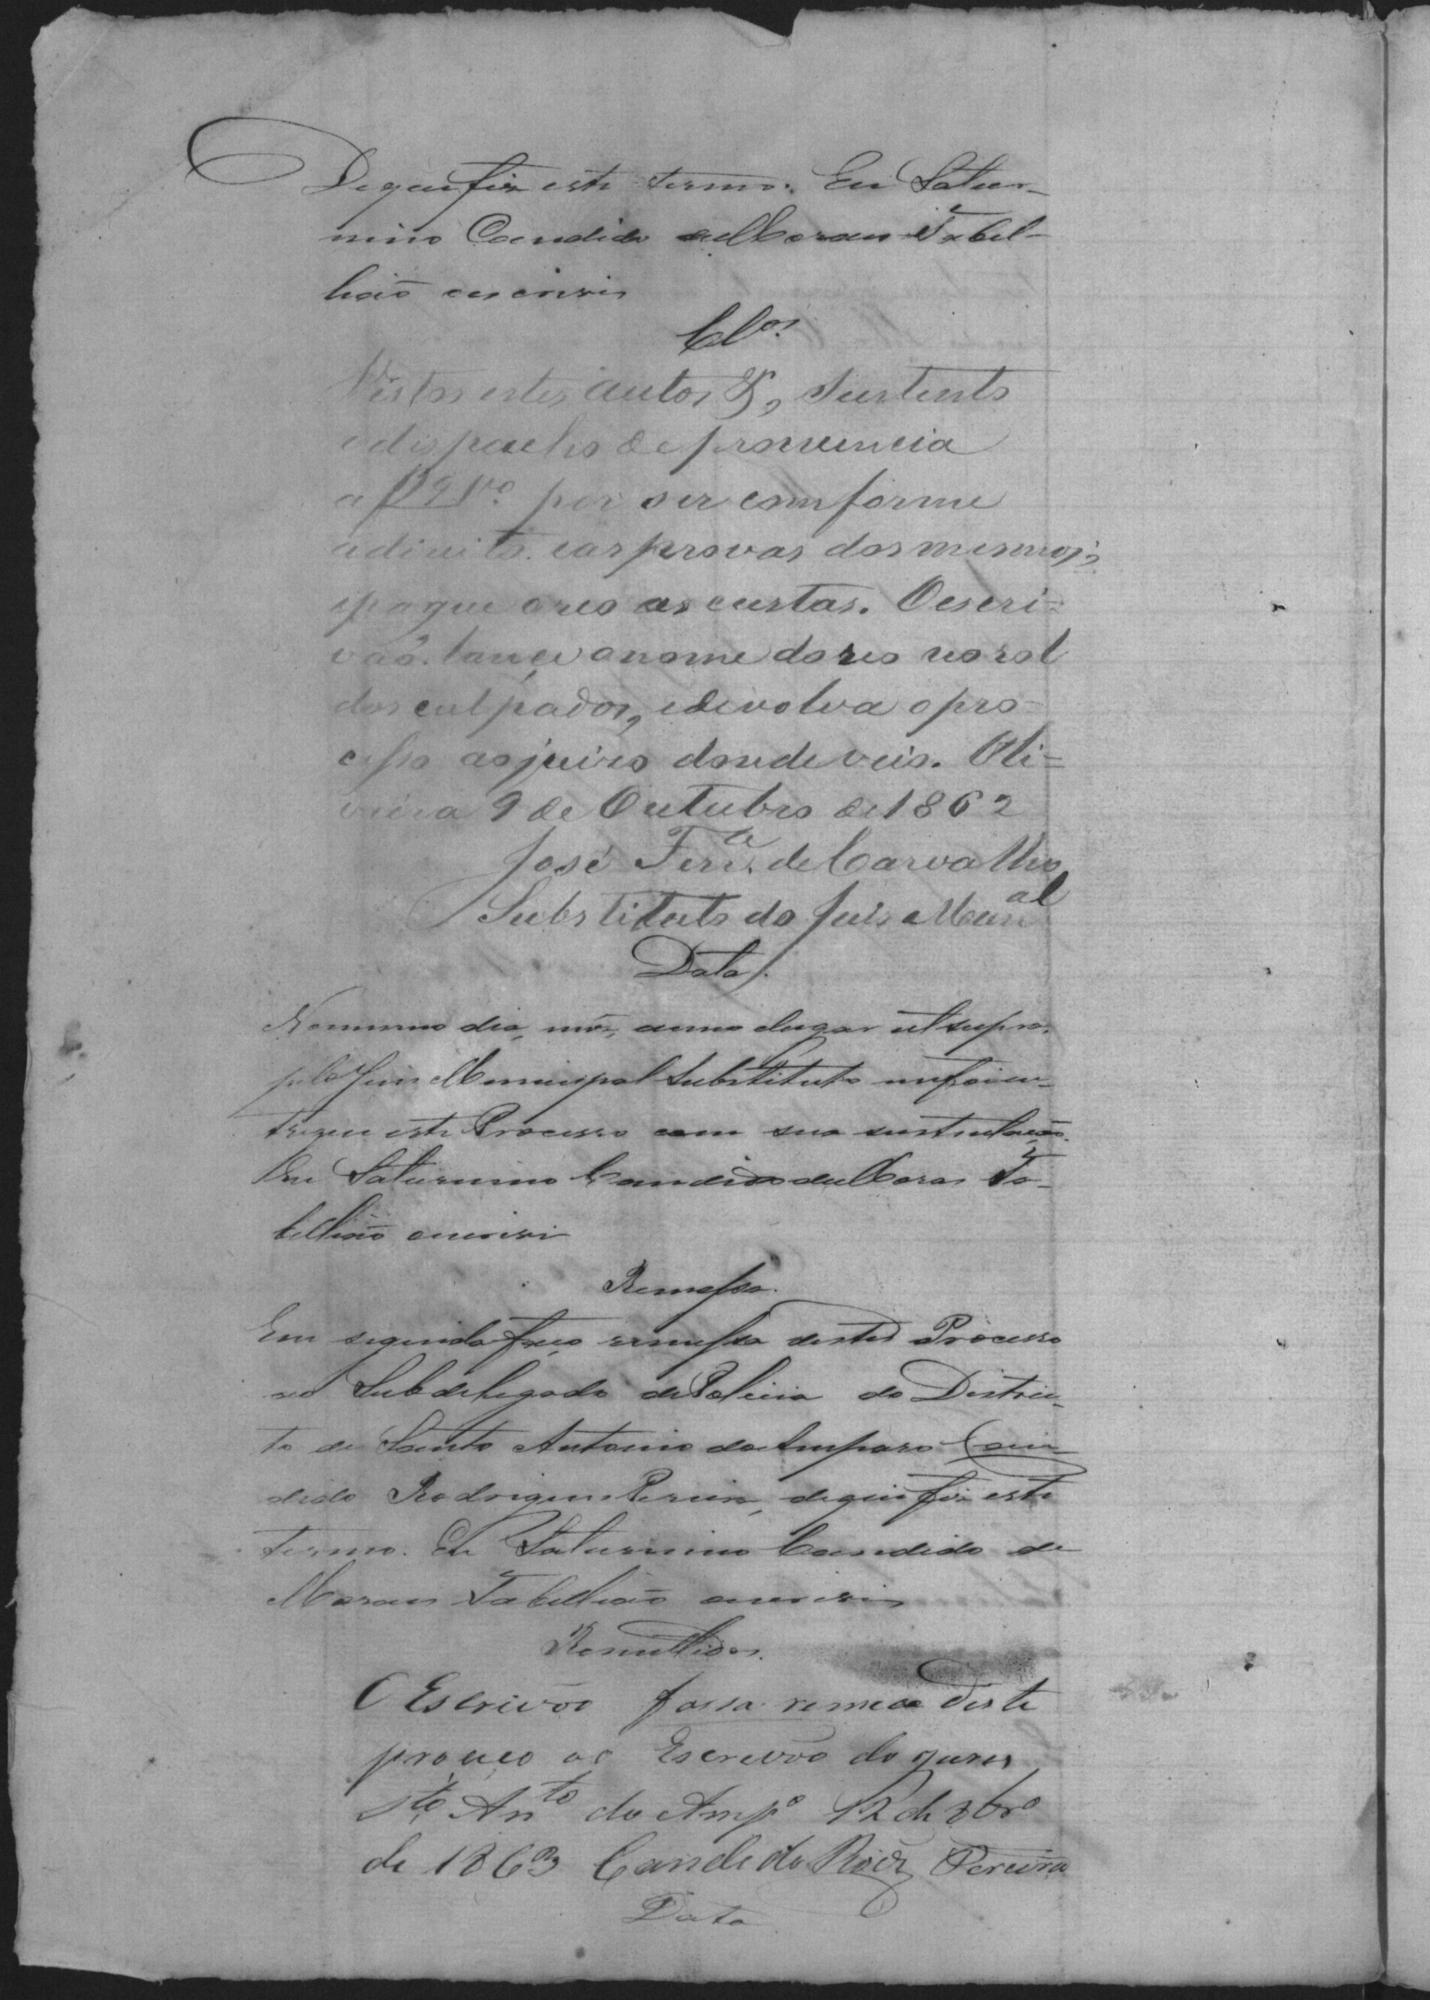 De que fiz este termo. Eu Satur-
nino Candido de Moraes Tabel-
lião escrevi
Clos.
Vistos estes autos &, sustento
o dispacho de pronuncia
a f por ser comforme
a direito. e as provas dos mesmos;
e pague o reo as custas. O escri-
vão lance o nome do reo no rol
dos culpados, e devolva o pro-
cesso ao juiso donde veio. Oli-
veira 9 de Outubro de 1862
José Ferra. de Carvalho
Substituto do Juis Munal
Data.
No mesmo dia, mes, anno e lugar ut supra.
pelo Juis Municipal Substituto me foi en-
tregue este Processo com sua sustentação.
Eu Saturnino Candido de Moraes Ta-
bellião escrevi
Remessa.
Em seguida faço remessa deste Processo
ao Subdelegado de Policia do Distric-
to de Santo Antonio do Amparo Can-
dido Rodrigues Pereira, de que fiz este
termo. Eu Saturnino Candido de
Moraes Tabellião escrevi
Remettidos.
O Escrivão fassa remeça deste
proceço ao Escrivão do
Sto. Anto do Ampo 12 de 8bro
de 1863 Candido Roiz Pereira
Data